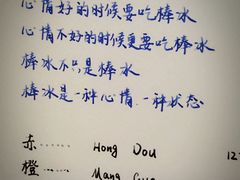 心情好的时候要吃棒冰
心情不好的时候更要吃棒冰
棒冰不只是棒冰
棒冰是一种心情.一种状态
赤 Hong Dou 12
橙 Mang Guo